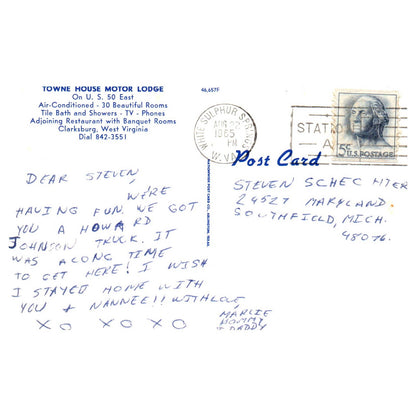 TOWNE HOUSE MOTOR LODGE
On U. S. 50 East
Air-Conditioned - 30 Beautiful Rooms
Tile Bath and Showers - TV - Phones
Adjoining Restaurant with Banquet Rooms
Clarksburg, West Virginia
Dial 842-3551
46,657F
WHITE SULPHUR SPRINGS
AUG 22
PM
1965
W.VA.
STATIO
A
5¢ U.S. POSTAGE
Post Card
DEAR STEVEN,
WE'RE
HAVING FUN. WE GOT
YOU A HOWARD
JOHNSON TRUCK. IT
WAS A LONG TIME
TO GET HERE! I WISH
I STAYED HOME WITH
YOU & NANNEE!! WITH LOVE
XO XO XO
MARCIE
MOMMY
& DADDY
STEVEN SCHECHTER
24527 MARYLAND
SOUTHFIELD, MICH.
48076